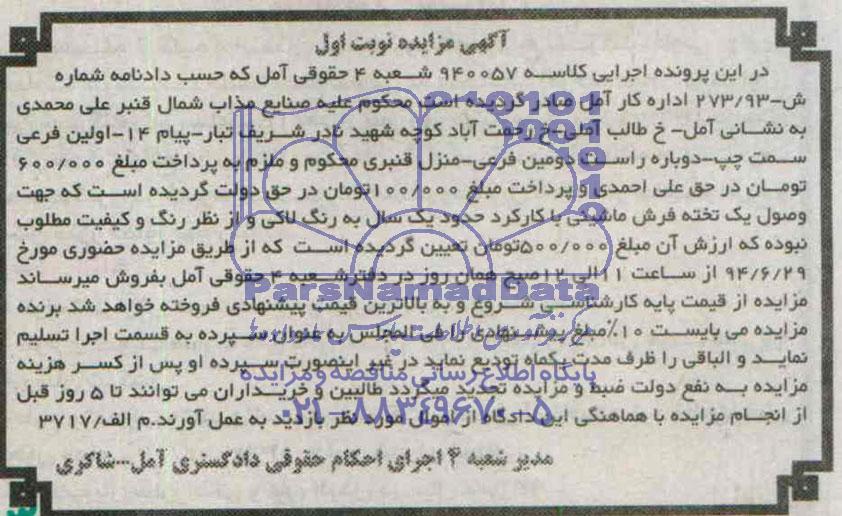 آگهی مزایده نوبت اول
در این پرونده اجرایی کلاسه ۹۴۰۰۵۷ شعبه ۴ حقوقی آمل که حسب دادنامه شماره
ش-۲۷۳/۹۳ اداره کار آمل صادر گردیده است محکوم علیه صنایع مذاب شمال قنبر علی محمدی
به نشانی آمل- خ طالب آملی-خ رحمت آباد کوچه شهید نادر شریف تبار-پیام ۱۴-اولین فرعی
سمت چپ-دوباره راست دومین فرعی-منزل قنبری محکوم و ملزم به پرداخت مبلغ ۶۰۰/۰۰۰
تومان در حق علی احمدی و پرداخت مبلغ ۱۰۰/۰۰۰تومان در حق دولت گردیده است که جهت
وصول یک تخته فرش ماشینی با کارکرد حدود یک سال به رنگ لاکی و از نظر رنگ و کیفیت مطلوب
نبوده که ارزش آن مبلغ ۵۰۰/۰۰۰تومان تعیین گردیده است که از طریق مزایده حضوری مورخ
۹۴/۶/۲۹ از ساعت ۱۱الی ۱۲صبح همان روز در دفترشعبه ۴ حقوقی آمل بفروش میرساند
مزایده از قیمت پایه کارشناسی شروع و به بالاترین قیمت پیشنهادی فروخته خواهد شد برنده
مزایده می بایست ۱۰٪مبلغ پیشنهادی را فی المجلس به عنوان سپرده به قسمت اجرا تسلیم
نماید و الباقی را ظرف مدت یکماه تودیع نماید در غیر اینصورت سپرده او پس از کسر هزینه
مزایده به نفع دولت ضبط و مزایده تجدید میگردد طالبین و خریداران می توانند تا ۵ روز قبل
از انجام مزایده با هماهنگی این دادگاه از اموال مورد نظر بازدید به عمل آورند.م الف/۳۷۱۷
مدیر شعبه ۴ اجرای احکام حقوقی دادگستری آمل---شاکری
ParsNamadData
پایگاه اطلاع رسانی مناقصه و مزایده
۰۲۱-۸۸۳۴۹۶۷۰-۵